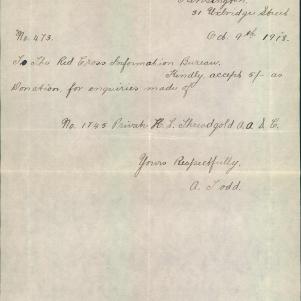 Kensington.
31 Uxbridge Street
No. 473. Oct. 9th 1918.
To The Red Cross Information Bureau.
Kindly accept 5/- as
Donation for enquiries made of
No. 1745 Private H. L. Threadgold A.A.S.C.
Yours Respectfully.
A. Todd.